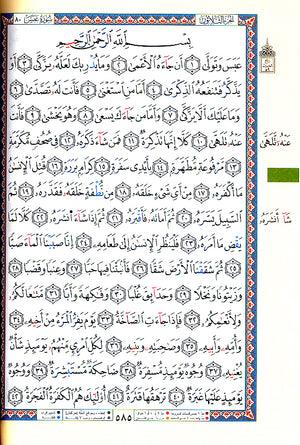 سورة عبس ٨٠
الجزء الثلاثون
بِسْمِ اللَّهِ الرَّحْمَٰنِ الرَّحِيمِ
عَبَسَ وَتَوَلَّىٰ ١ أَن جَاءَهُ الْأَعْمَىٰ ٢ وَمَا يُدْرِيكَ لَعَلَّهُ يَزَّكَّىٰ ٣ أَوْ
يَذَّكَّرُ فَتَنفَعَهُ الذِّكْرَىٰ ٤ أَمَّا مَنِ اسْتَغْنَىٰ ٥ فَأَنتَ لَهُ تَصَدَّىٰ ٦
وَمَا عَلَيْكَ أَلَّا يَزَّكَّىٰ ٧ وَأَمَّا مَن جَاءَكَ يَسْعَىٰ ٨ وَهُوَ يَخْشَىٰ ٩ فَأَنتَ
عَنْهُ تَلَهَّىٰ ١٠ كَلَّا إِنَّهَا تَذْكِرَةٌ ١١ فَمَن شَاءَ ذَكَرَهُ ١٢ فِي صُحُفٍ مُّكَرَّمَةٍ
١٣ مَّرْفُوعَةٍ مُّطَهَّرَةٍ ١٤ بِأَيْدِي سَفَرَةٍ ١٥ كِرَامٍ بَرَرَةٍ ١٦ قُتِلَ الْإِنسَانُ
مَا أَكْفَرَهُ ١٧ مِنْ أَيِّ شَيْءٍ خَلَقَهُ ١٨ مِن نُّطْفَةٍ خَلَقَهُ فَقَدَّرَهُ ١٩ ثُمَّ
السَّبِيلَ يَسَّرَهُ ٢٠ ثُمَّ أَمَاتَهُ فَأَقْبَرَهُ ٢١ ثُمَّ إِذَا شَاءَ أَنشَرَهُ ٢٢ كَلَّا لَمَّا
يَقْضِ مَا أَمَرَهُ ٢٣ فَلْيَنظُرِ الْإِنسَانُ إِلَىٰ طَعَامِهِ ٢٤ أَنَّا صَبَبْنَا الْمَاءَ صَبًّا
٢٥ ثُمَّ شَقَقْنَا الْأَرْضَ شَقًّا ٢٦ فَأَنبَتْنَا فِيهَا حَبًّا ٢٧ وَعِنَبًا وَقَضْبًا ٢٨
وَزَيْتُونًا وَنَخْلًا ٢٩ وَحَدَائِقَ غُلْبًا ٣٠ وَفَاكِهَةً وَأَبًّا ٣١ مَّتَاعًا لَّكُمْ
وَلِأَنْعَامِكُمْ ٣٢ فَإِذَا جَاءَتِ الصَّاخَّةُ ٣٣ يَوْمَ يَفِرُّ الْمَرْءُ مِنْ أَخِيهِ ٣٤
وَأُمِّهِ وَأَبِيهِ ٣٥ وَصَاحِبَتِهِ وَبَنِيهِ ٣٦ لِكُلِّ امْرِئٍ مِّنْهُمْ يَوْمَئِذٍ شَأْنٌ
يُغْنِيهِ ٣٧ وُجُوهٌ يَوْمَئِذٍ مُّسْفِرَةٌ ٣٨ ضَاحِكَةٌ مُّسْتَبْشِرَةٌ ٣٩ وَوُجُوهٌ
يَوْمَئِذٍ عَلَيْهَا غَبَرَةٌ ٤٠ تَرْهَقُهَا قَتَرَةٌ ٤١ أُولَٰئِكَ هُمُ الْكَفَرَةُ الْفَجَرَةُ ٤٢
عَنْهُ تَلَهَّىٰ
شَاءَ أَنشَرَهُ
٥٨٥